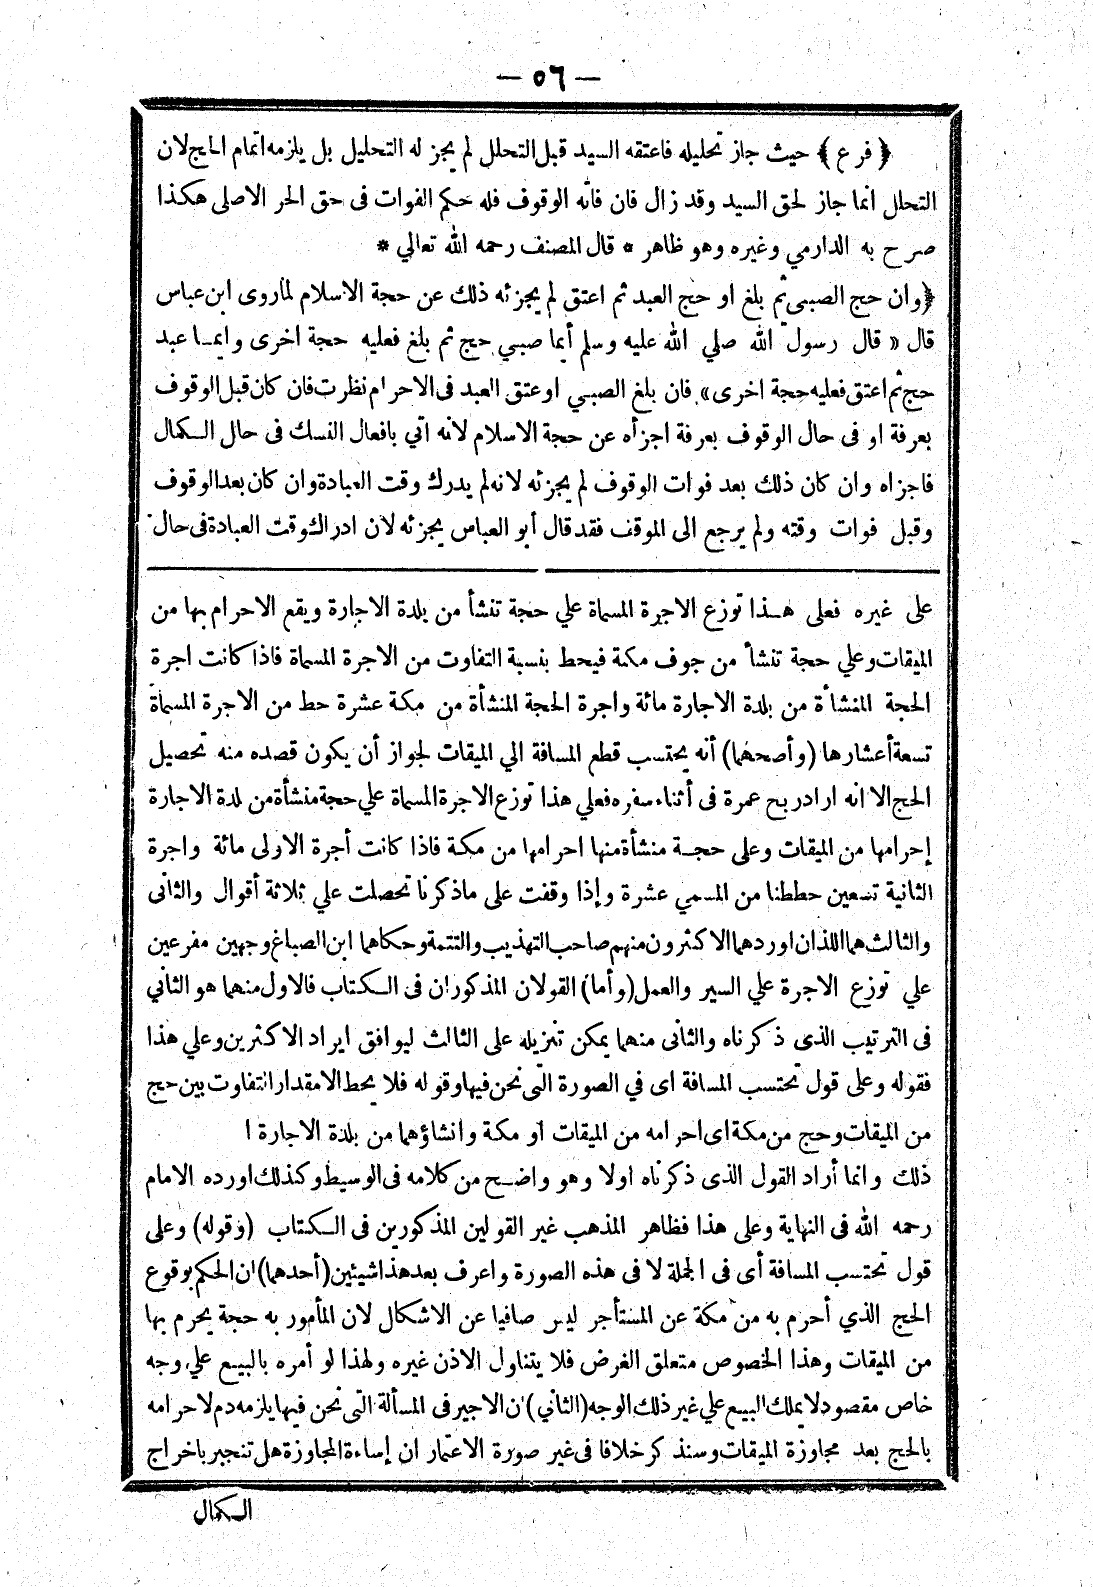 — ٥٦ —
﴿ فرع ﴾ حيث جاز تحليله فاعتقه السيد قبل التحلل لم يجز له التحليل بل يلزمه اتمام الحج لان
التحلل انما جاز لحق السيد وقد زال فان فاته الوقوف فله حكم الفوات فى حق الحر الاصلى هكذا
صرح به الدارمي وغيره وهو ظاهر * قال المصنف رحمه الله تعالي *
﴿وان حج الصبى ثم بلغ او حج العبد ثم اعتق لم يجزئه ذلك عن حجة الاسلام لما روى ابن عباس
قال « قال رسول الله صلي الله عليه وسلم أيما صبي حج ثم بلغ فعليه حجة اخرى وايمـا عبد
حج ثم اعتق فعليه حجة اخرى » فان بلغ الصبي اوعتق العبد فى الاحرام نظرت فان كان قبل الوقوف
بعرفة او فى حال الوقوف بعرفة اجزأه عن حجة الاسلام لانه اتي بافعال النسك فى حال الـكمال
فاجزاه وان كان ذلك بعد فوات الوقوف لم يجزئه لانه لم يدرك وقت العبادة وان كان بعد الوقوف
وقبل فوات وقته ولم يرجع الى الموقف فقد قال أبو العباس يجزئه لان ادراك وقت العبادة فى حال
على غيره فعلى هـذا توزع الاجرة المسماة علي حجة تنشأ من بلدة الاجارة ويقع الاحرام بها من
الميقات وعلي حجة تنشأ من جوف مكة فيحط بنسبة التفاوت من الاجرة المسماة فاذا كانت اجرة
الحجة المنشأة من بلدة الاجارة مائة واجرة الحجة المنشأة من مكة عشرة حط من الاجرة المسماة
تسعة أعشارها (وأصحهما) أنه يحتسب قطع المسافة الي الميقات لجواز أن يكون قصده منه تحصيل
الحج الا انه اراد ربح عمرة فى أثناء سفره فعلي هذا توزع الاجرة المسماة علي حجة منشأة من بلدة الاجارة
إحرامها من الميقات وعلى حجـة منشأة منها احرامها من مكة فاذا كانت أجرة الاولى مائة واجرة
الثانية تسعين حططنا من المسمي عشرة وإذا وقفت على ماذكرنا تحصلت علي ثلاثة أقوال والثانى
والثالث هما اللذان اوردهما الاكثرون منهم صاحب التهذيب والتتمة وحكاهما ابن الصباغ وجهين مفرعين
علي توزع الاجرة علي السير والعمل (وأما) القولان المذكوران فى الـكتاب فالاول منهما هو الثاني
فى الترتيب الذى ذكرناه والثانى منهما يمكن تنزيله على الثالث ليوافق ايراد الاكثرين وعلي هذا
فقوله وعلى قول تحتسب المسافة اى في الصورة التى نحن فيها وقوله فلا يحط الا مقدار التفاوت بين حج
من الميقات وحج من مكة اى احرامه من الميقات او مكة وانشاؤهما من بلدة الاجارة ا
ذلك وانما أراد القول الذى ذكرناه اولا وهو واضـح من كلامه فى الوسيط وكذلك اورده الامام
رحمه الله فى النهاية وعلى هذا فظاهر المذهب غير القولين المذكورين فى الـكتاب (وقوله) وعلى
قول تحتسب المسافة أى فى الجملة لا فى هذه الصورة واعرف بعد هذا شيئين (أحدهما) ان الحكم بوقوع
الحج الذي أحرم به من مكة عن المستأجر ليس صافيا عن الاشكال لان المأمور به حجة يحرم بها
من الميقات وهذا الخصوص متعلق الغرض فلا يتناول الاذن غيره ولهذا لو أمره بالبيع علي وجه
خاص مقصود لا يملك البيع علي غير ذلك الوجه (الثاني) ان الاجير فى المسألة التى نحن فيها يلزمه دم لاحرامه
بالحج بعد مجاوزة الميقات وسنذكر خلافا فى غير صورة الاعتمار ان إساءة المجاوزة هل تنجبر باخراج
الـكمال